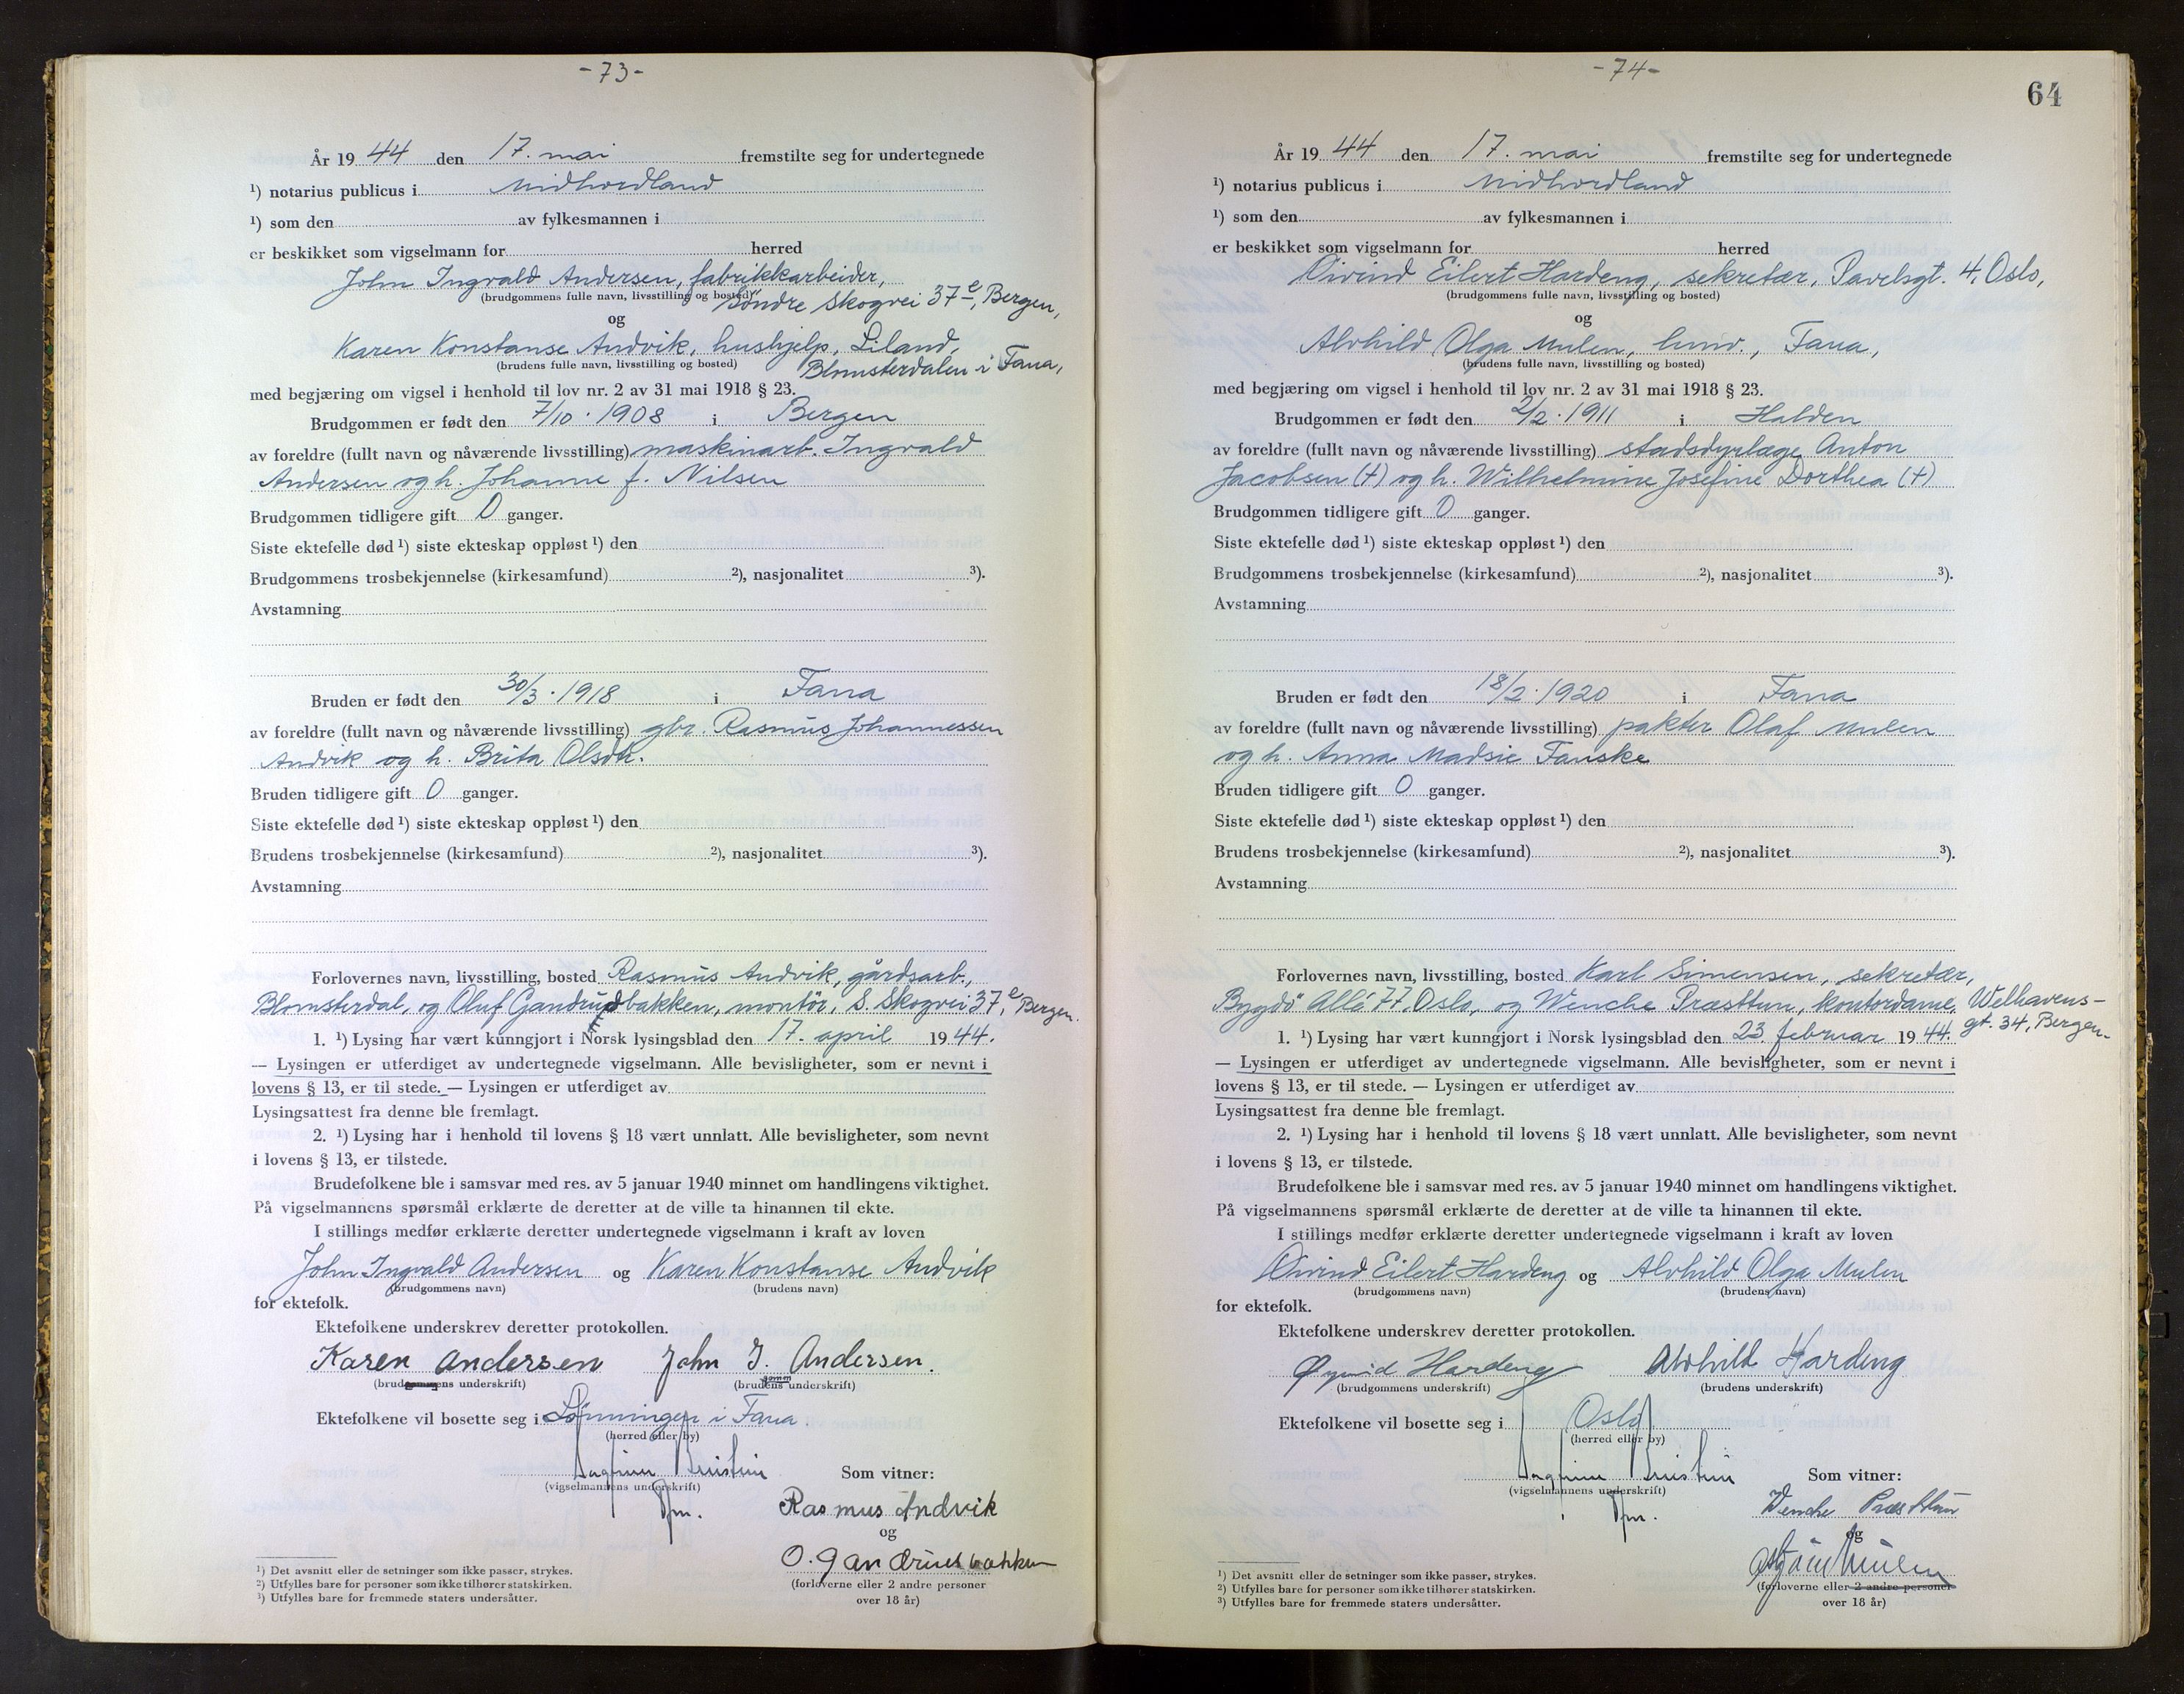 -73-
År 19 44 den 17. mai fremstilte seg for undertegnede
¹) notarius publicus i Midhordland
¹) som den av fylkesmannen i
er beskikket som vigselmann for herred
John Ingvald Andersen, fabrikkarbeider,
(brudgommens fulle navn, livsstilling og bosted)
Søndre Skogvei 37 e, Bergen,
og
Karen Konstanse Andvik, hushjelp, Liland,
(brudens fulle navn, livsstilling og bosted)
Blomsterdalen i Fana,
med begjæring om vigsel i henhold til lov nr. 2 av 31 mai 1918 § 23.
Brudgommen er født den 7/10. 1908 i Bergen
av foreldre (fullt navn og nåværende livsstilling) maskinarb. Ingvald
Andersen og h. Johanne f. Nilsen
Brudgommen tidligere gift 0 ganger.
Siste ektefelle død ¹) siste ekteskap oppløst ¹) den
Brudgommens trosbekjennelse (kirkesamfund) ²), nasjonalitet ³).
Avstamning
Bruden er født den 30/3. 1918 i Fana
av foreldre (fullt navn og nåværende livsstilling) gbr. Rasmus Johannessen
Andvik og h. Brita Olsdtr.
Bruden tidligere gift 0 ganger.
Siste ektefelle død ¹) siste ekteskap oppløst ¹) den
Brudens trosbekjennelse (kirkesamfund) ²), nasjonalitet ³).
Avstamning
Forlovernes navn, livsstilling, bosted Rasmus Andvik, gårdsarb.,
Blomsterdal, og Oluf Gandrudbakken, montør, S. Skogvei 37 e, Bergen.
1. ¹) Lysing har vært kunngjort i Norsk lysingsblad den 17. april 19 44.
— Lysingen er utferdiget av undertegnede vigselmann. Alle bevisligheter, som er nevnt i
lovens § 13, er til stede. — Lysingen er utferdiget av
Lysingsattest fra denne ble fremlagt.
2. ¹) Lysing har i henhold til lovens § 18 vært unnlatt. Alle bevisligheter, som nevnt
i lovens § 13, er tilstede.
Brudefolkene ble i samsvar med res. av 5 januar 1940 minnet om handlingens viktighet.
På vigselmannens spørsmål erklærte de deretter at de ville ta hinannen til ekte.
I stillings medfør erklærte deretter undertegnede vigselmann i kraft av loven
John Ingvald Andersen og Karen Konstanse Andvik
(brudgommens navn) (brudens navn)
for ektefolk.
Ektefolkene underskrev deretter protokollen.
Karen Andersen John I. Andersen.
(brudgommens underskrift) (brudens underskrift)
gomm
Ektefolkene vil bosette seg i Lønningen i Fana.
(herred eller by)
(vigselmannens underskrift)
Som vitner:
Rasmus Andvik
og
O. Gandrudbakken
(forloverne eller 2 andre personer
over 18 år)
¹) Det avsnitt eller de setninger som ikke passer, strykes.
²) Utfylles bare for personer som ikke tilhører statskirken.
³) Utfylles bare for fremmede staters undersåtter.
-74-
64
År 19 44 den 17. mai fremstilte seg for undertegnede
¹) notarius publicus i Midhordland
¹) som den av fylkesmannen i
er beskikket som vigselmann for herred
Øivind Eilert Hardeng, sekretær, Pavelsgt. 4, Oslo,
(brudgommens fulle navn, livsstilling og bosted)
og
Alvhild Olga Mulen, , Fana,
(brudens fulle navn, livsstilling og bosted)
med begjæring om vigsel i henhold til lov nr. 2 av 31 mai 1918 § 23.
Brudgommen er født den 2/2. 1911 i Halden
av foreldre (fullt navn og nåværende livsstilling) stadsdyrlæge Anton
Jacobsen (+) og h. Wilhelmine Josefine Dorthea (+)
Brudgommen tidligere gift 0 ganger.
Siste ektefelle død ¹) siste ekteskap oppløst ¹) den
Brudgommens trosbekjennelse (kirkesamfund) ²), nasjonalitet ³).
Avstamning
Bruden er født den 18/2. 1920 i Fana
av foreldre (fullt navn og nåværende livsstilling) pakter Olaf Mulen
og h. Anna Madsie Fanske
Bruden tidligere gift 0 ganger.
Siste ektefelle død ¹) siste ekteskap oppløst ¹) den
Brudens trosbekjennelse (kirkesamfund) ²), nasjonalitet ³).
Avstamning
Forlovernes navn, livsstilling, bosted Karl Simensen, sekretær,
Bygdø Allé 77, Oslo, og Wenche Præsttun, kontordame, Welhavens-
gt. 34, Bergen.
1. ¹) Lysing har vært kunngjort i Norsk lysingsblad den 23. februar 19 44.
— Lysingen er utferdiget av undertegnede vigselmann. Alle bevisligheter, som er nevnt i
lovens § 13, er til stede. — Lysingen er utferdiget av
Lysingsattest fra denne ble fremlagt.
2. ¹) Lysing har i henhold til lovens § 18 vært unnlatt. Alle bevisligheter, som nevnt
i lovens § 13, er tilstede.
Brudefolkene ble i samsvar med res. av 5 januar 1940 minnet om handlingens viktighet.
På vigselmannens spørsmål erklærte de deretter at de ville ta hinannen til ekte.
I stillings medfør erklærte deretter undertegnede vigselmann i kraft av loven
Øivind Eilert Hardeng og Alvhild Olga Mulen
(brudgommens navn) (brudens navn)
for ektefolk.
Ektefolkene underskrev deretter protokollen.
Øyvind Hardeng Alvhild Hardeng
(brudgommens underskrift) (brudens underskrift)
Ektefolkene vil bosette seg i Oslo
(herred eller by)
(vigselmannens underskrift)
Som vitner:
Wenche Præsttun
og
Mulen
(forloverne eller 2 andre personer
over 18 år)
¹) Det avsnitt eller de setninger som ikke passer, strykes.
²) Utfylles bare for personer som ikke tilhører statskirken.
³) Utfylles bare for fremmede staters undersåtter.